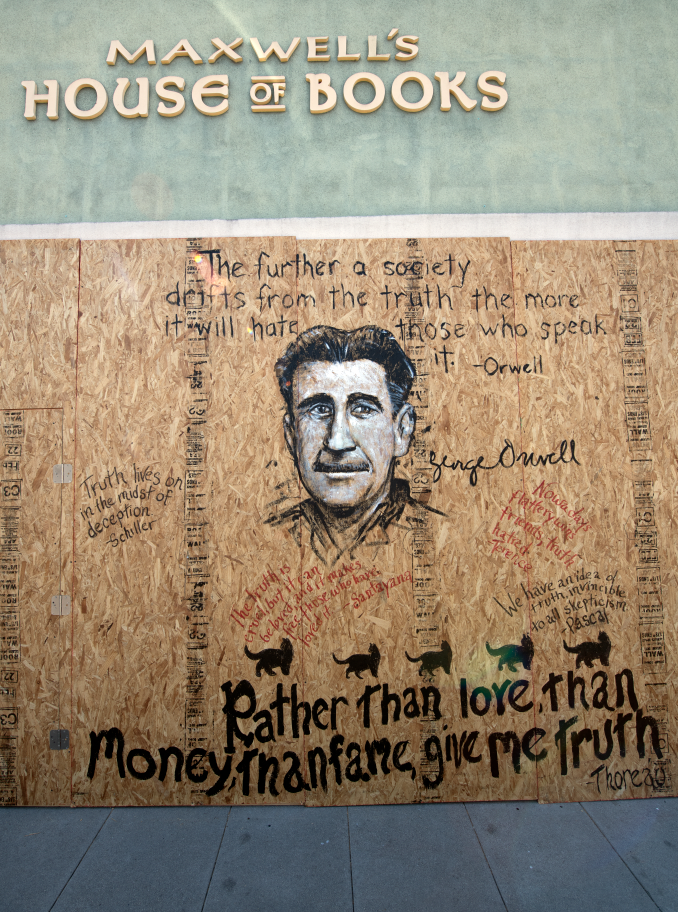 MAXWELL'S
HOUSE OF BOOKS
The further a society
drifts from the truth the more
it will hate those who speak
it. -Orwell
George Orwell
Truth lives on
in the midst of
deception
-Schiller
Nowadays
flattery wins
friends, truth
hatred
Terence
The truth is
cruel, but it can
be loved and it makes
free those who have
loved it. -Santayana
We have an idea of
truth, invincible
to all skepticism
-Pascal
Rather than love, than
Money, than fame, give me truth
-Thoreau